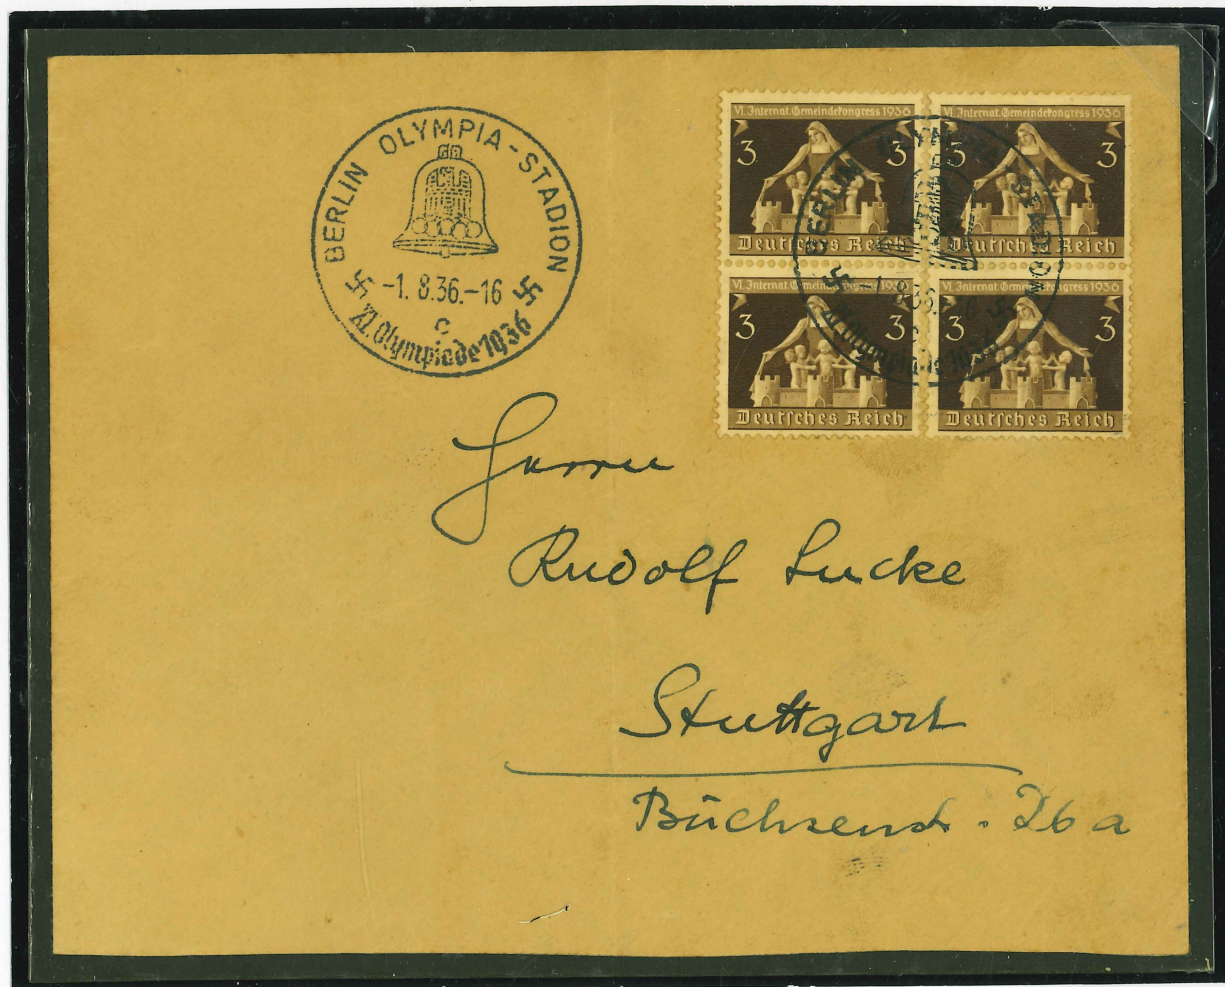 BERLIN OLYMPIA-STADION
-1. 8.36.-16
c
XI. Olympiade 1936
VI. Internat. Gemeindekongress 1936
3 3
Deutsches Reich
VI. Internat. Gemeindekongress 1936
3 3
Deutsches Reich
VI. Internat. Gemeindekongress 1936
3 3
Deutsches Reich
VI. Internat. Gemeindekongress 1936
3 3
Deutsches Reich
BERLIN OLYMPIA-STADION
-1. 8.36.-16
c
XI. Olympiade 1936
Herrn
Rudolf Lucke
Stuttgart
Büchsenstr. 26 a